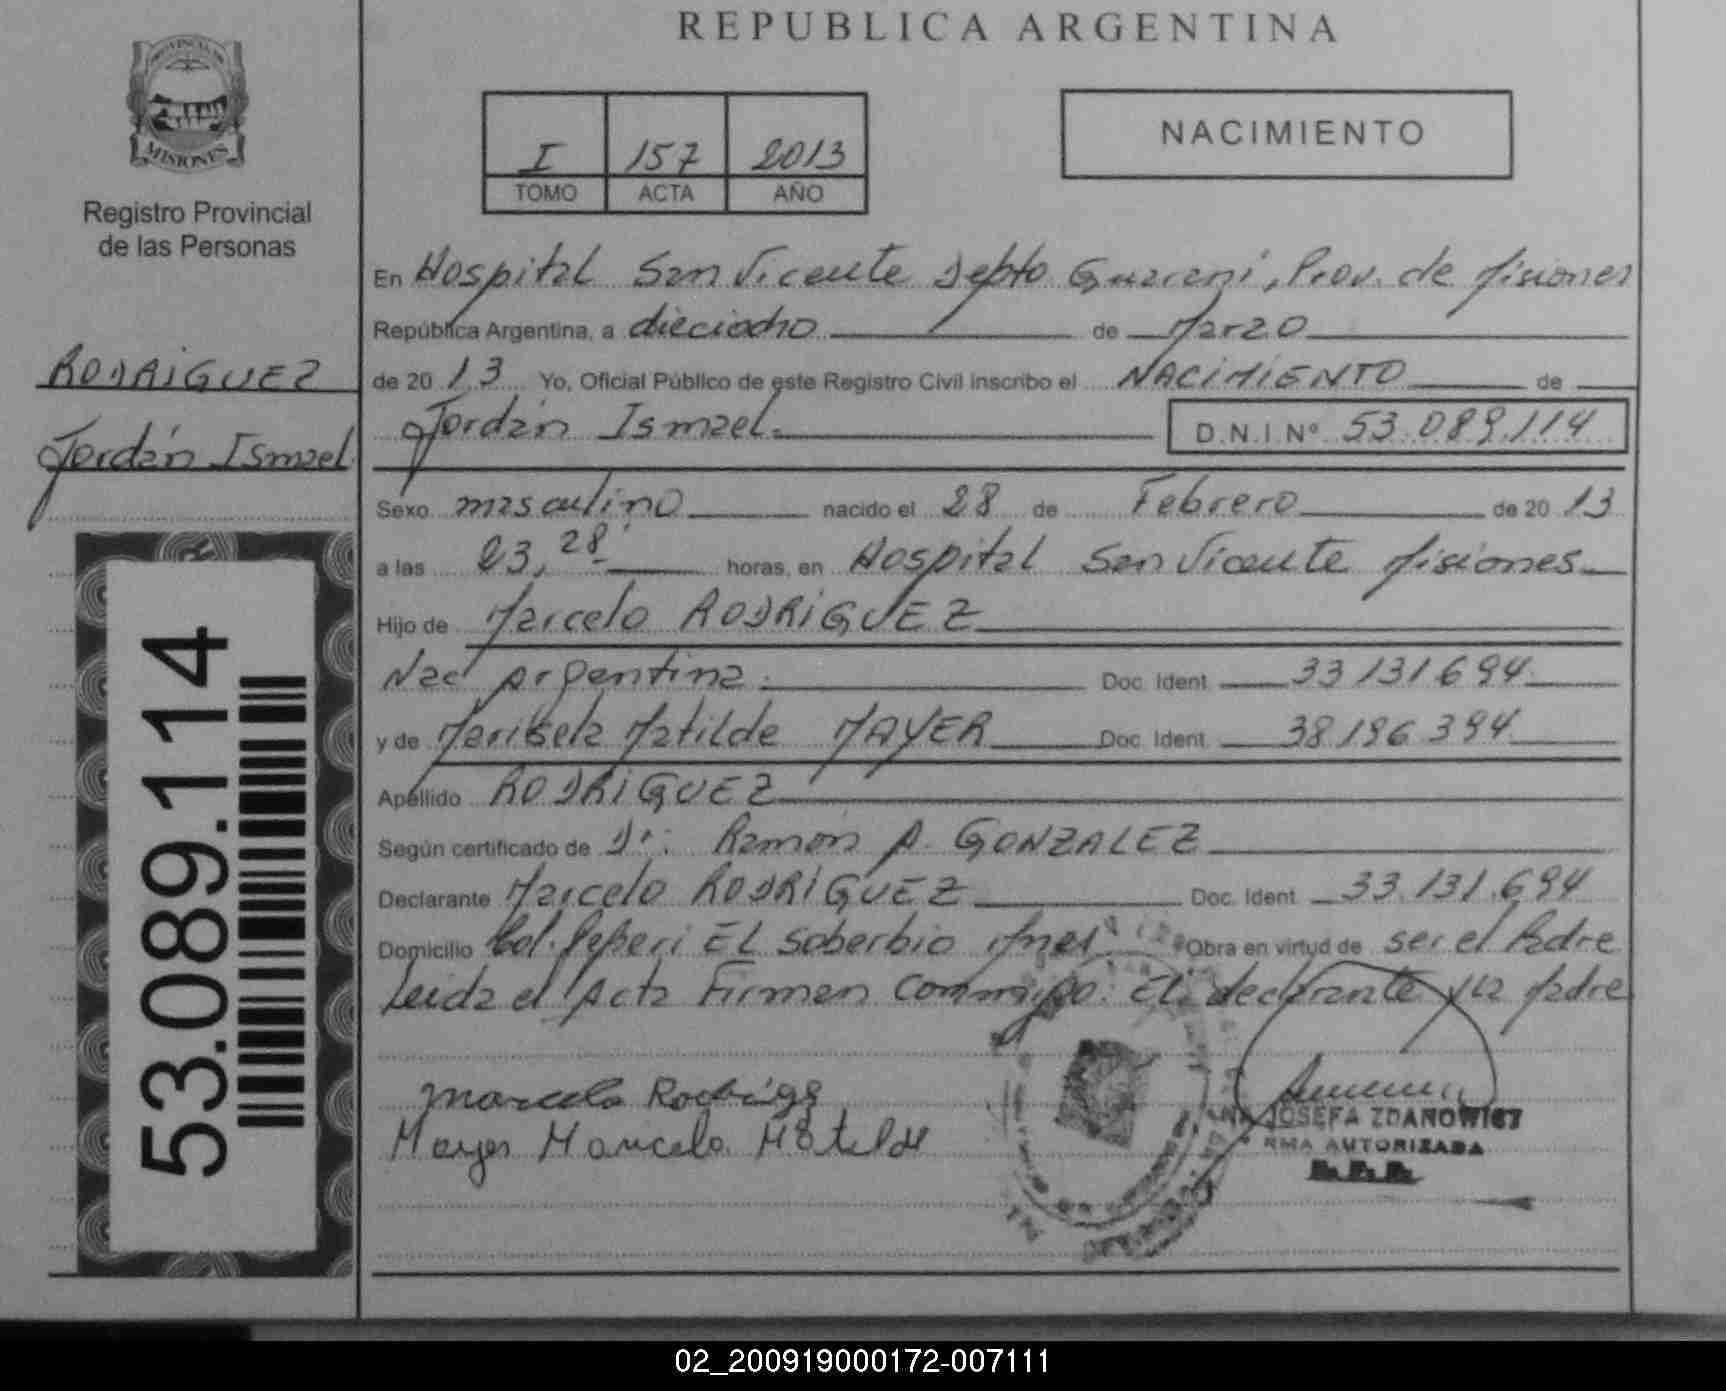 REPUBLICA ARGENTINA
PROVINCIA DE
MISIONES
Registro Provincial
de las Personas
RODRIGUEZ
Jordán Ismael
53.089.114
I 157 2013
TOMO ACTA AÑO
NACIMIENTO
En Hospital San Vicente Depto Guaraní, Prov. de Misiones
República Argentina, a dieciocho de Marzo
de 20 13 Yo, Oficial Público de este Registro Civil inscribo el NACIMIENTO de
Jordán Ismael. D.N.I Nº 53.089.114
Sexo masculino nacido el 28 de Febrero de 20 13
a las 23,28 horas, en Hospital San Vicente Misiones
Hijo de Marcelo RODRIGUEZ
Nac Argentina. Doc. Ident. 33.131.694
y de Marisela Matilde MAYER Doc. Ident. 38.196.394
Apellido RODRIGUEZ
Según certificado de Dr: Ramón A. GONZALEZ
Declarante Marcelo RODRIGUEZ Doc. Ident. 33.131.694
Domicilio Col. Peperi El Soberbio Mnes Obra en virtud de ser el Padre
Leida el Acta Firman conmigo: El declarante y la Madre
Marcelo Rodrigs
Mayer Maricela Matilde
JOSEFA ZDANOWICZ
FIRMA AUTORIZADA
R.P.P.
02_200919000172-007111